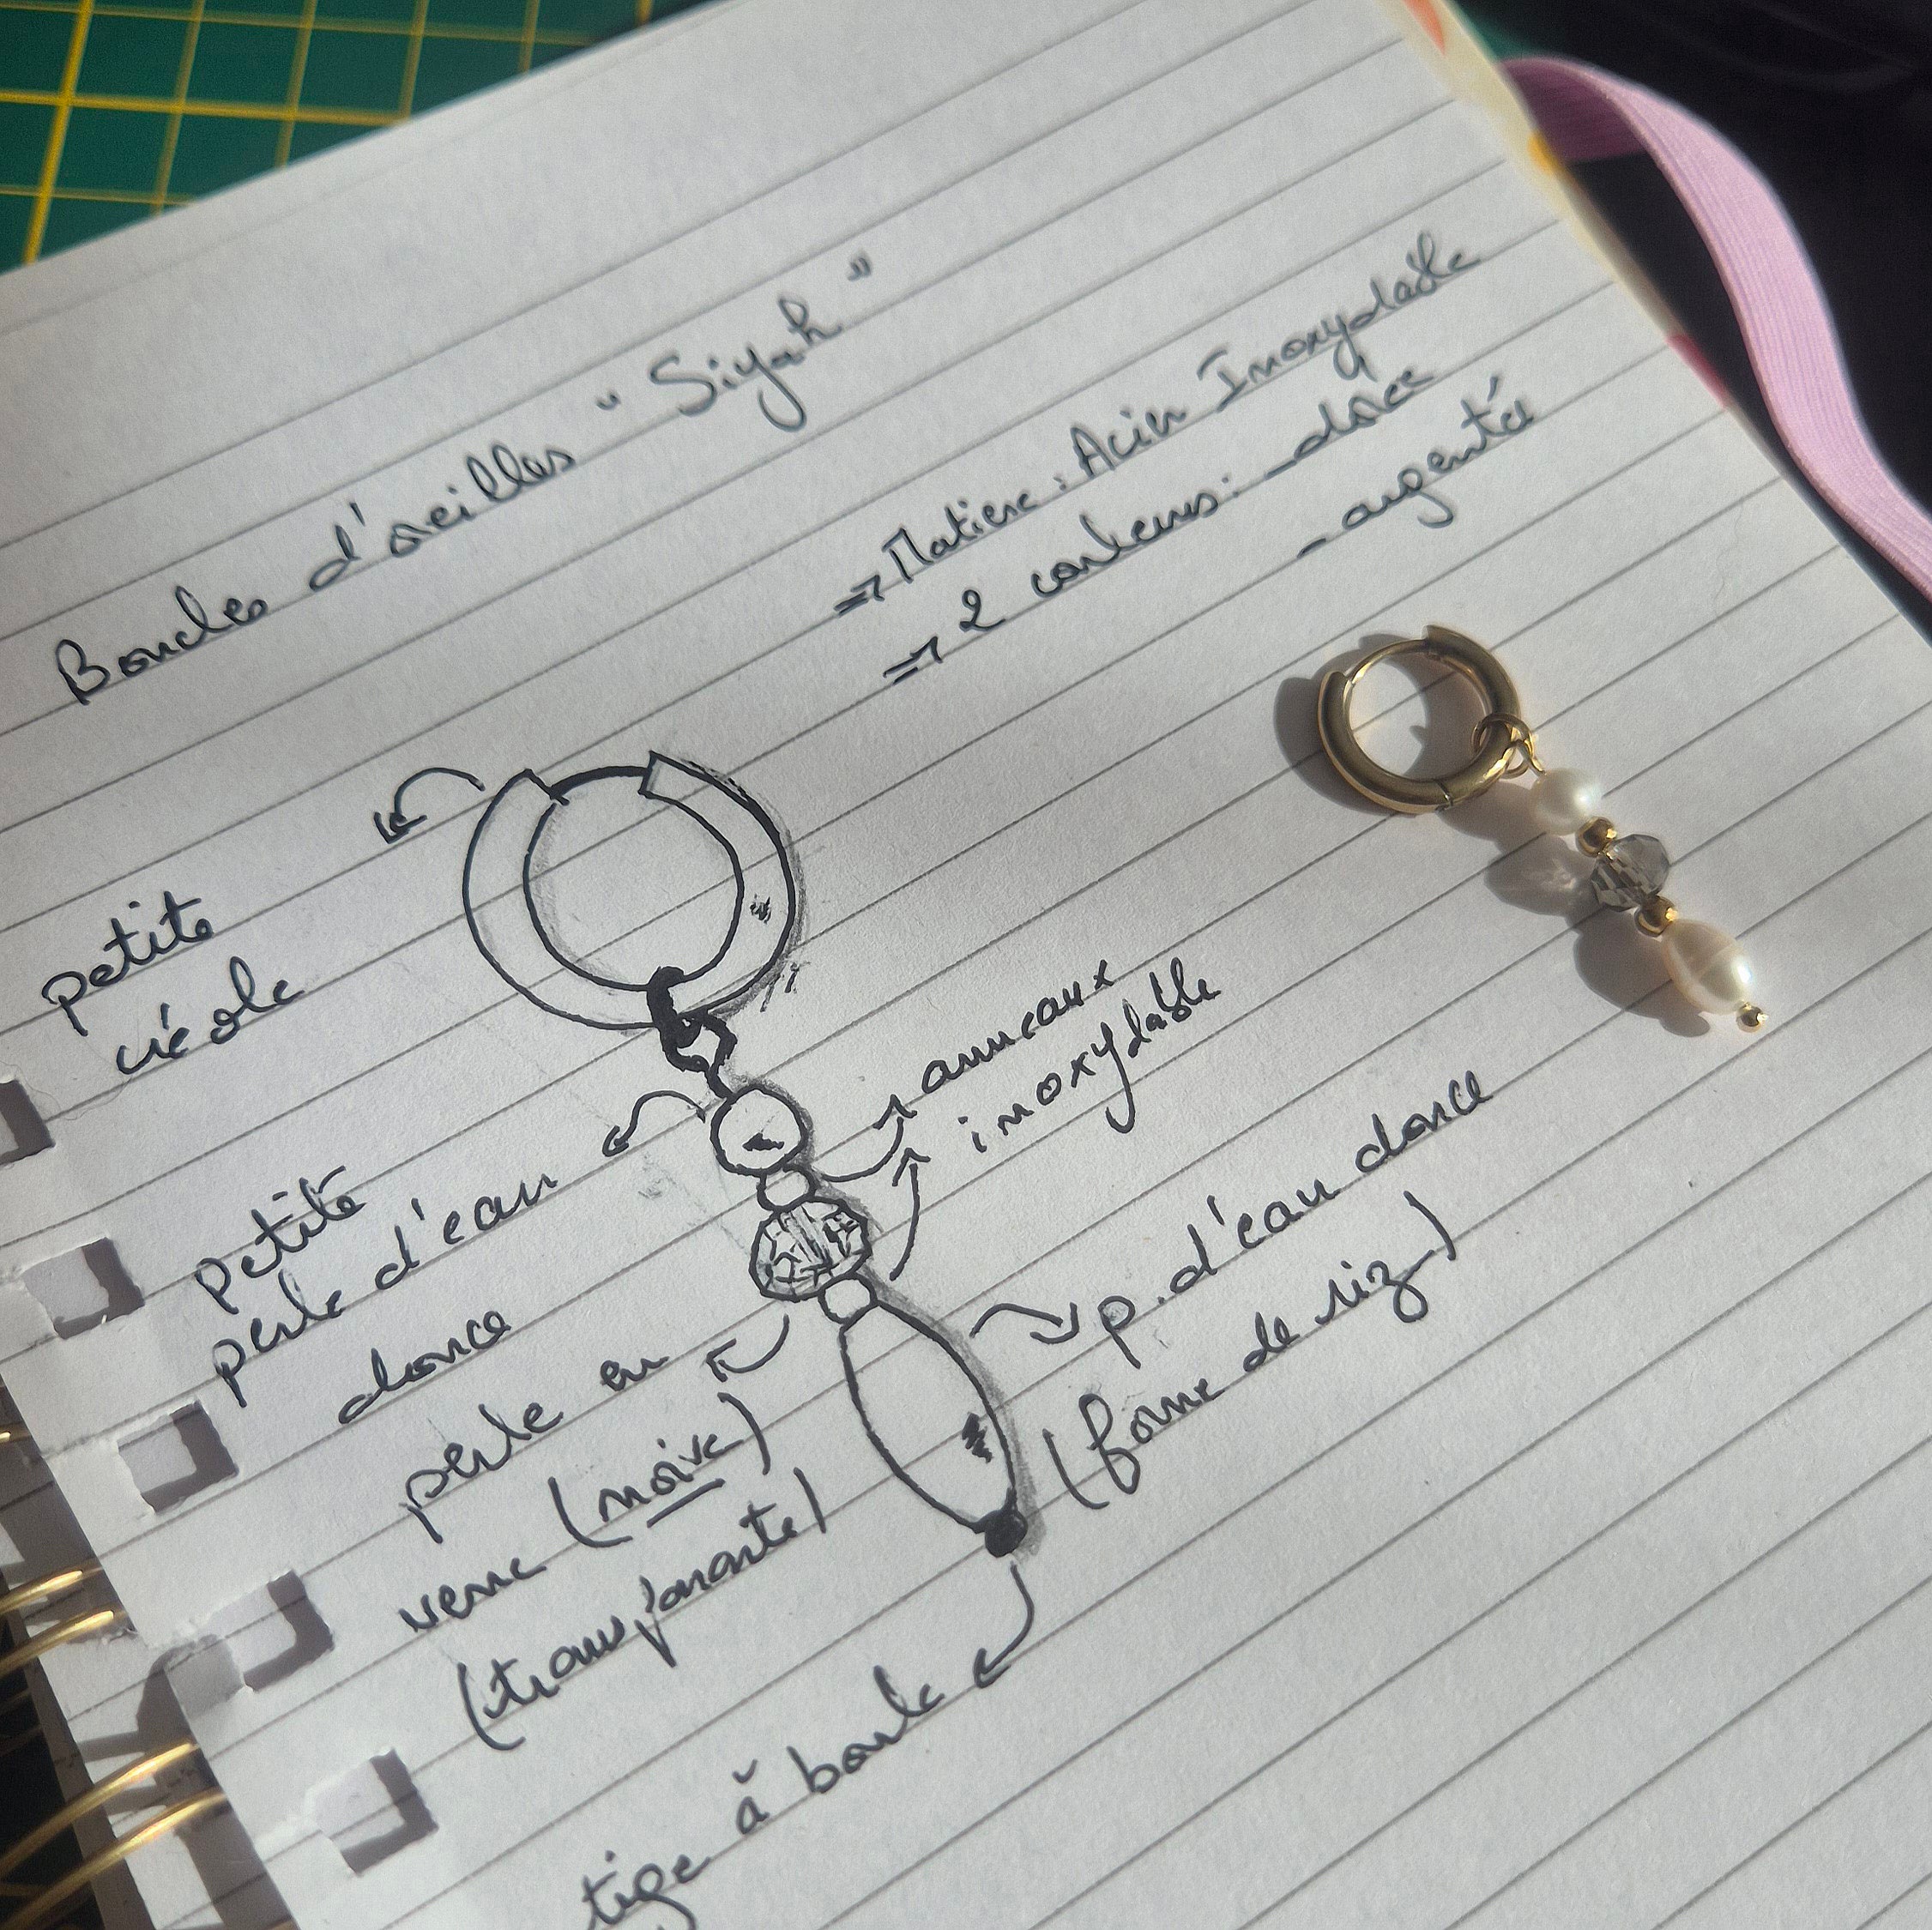 Boucles d'oreilles " Siyah "
=> Matière : Acier Inoxydable
=> 2 couleurs : - dorée
- argentée
petite
créole
anneaux
inoxydable
petite
perle d'eau
douce
p. d'eau douce
(forme de riz)
perle en
verre (noire)
(transparente)
tige à boule